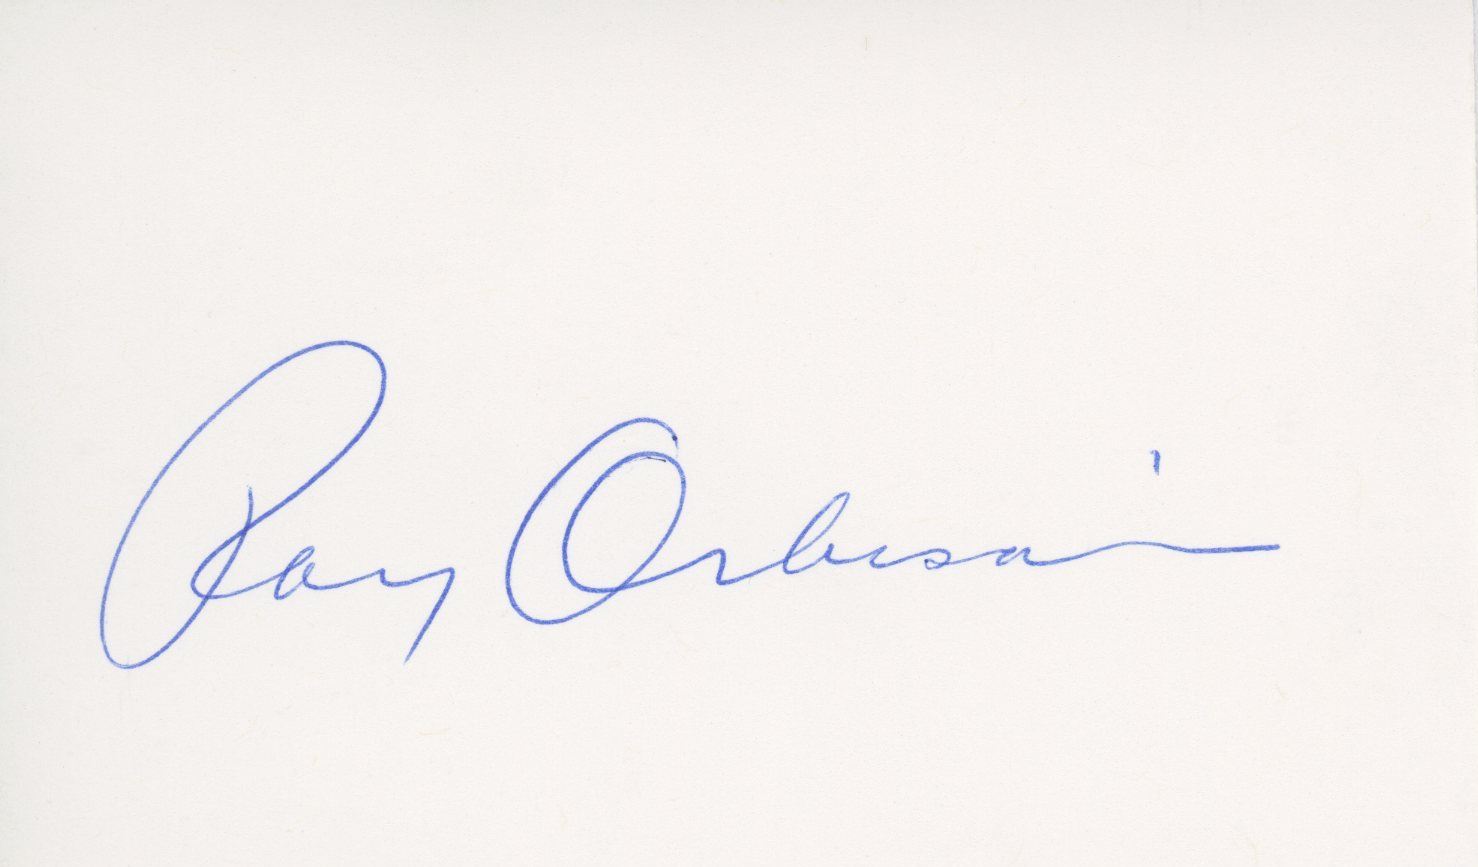 Roy Orbison